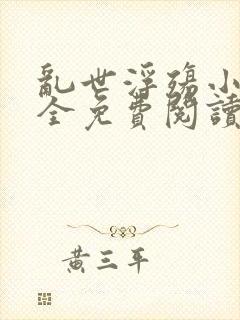 亂世浮殤小
全免費閱讀
黃三平